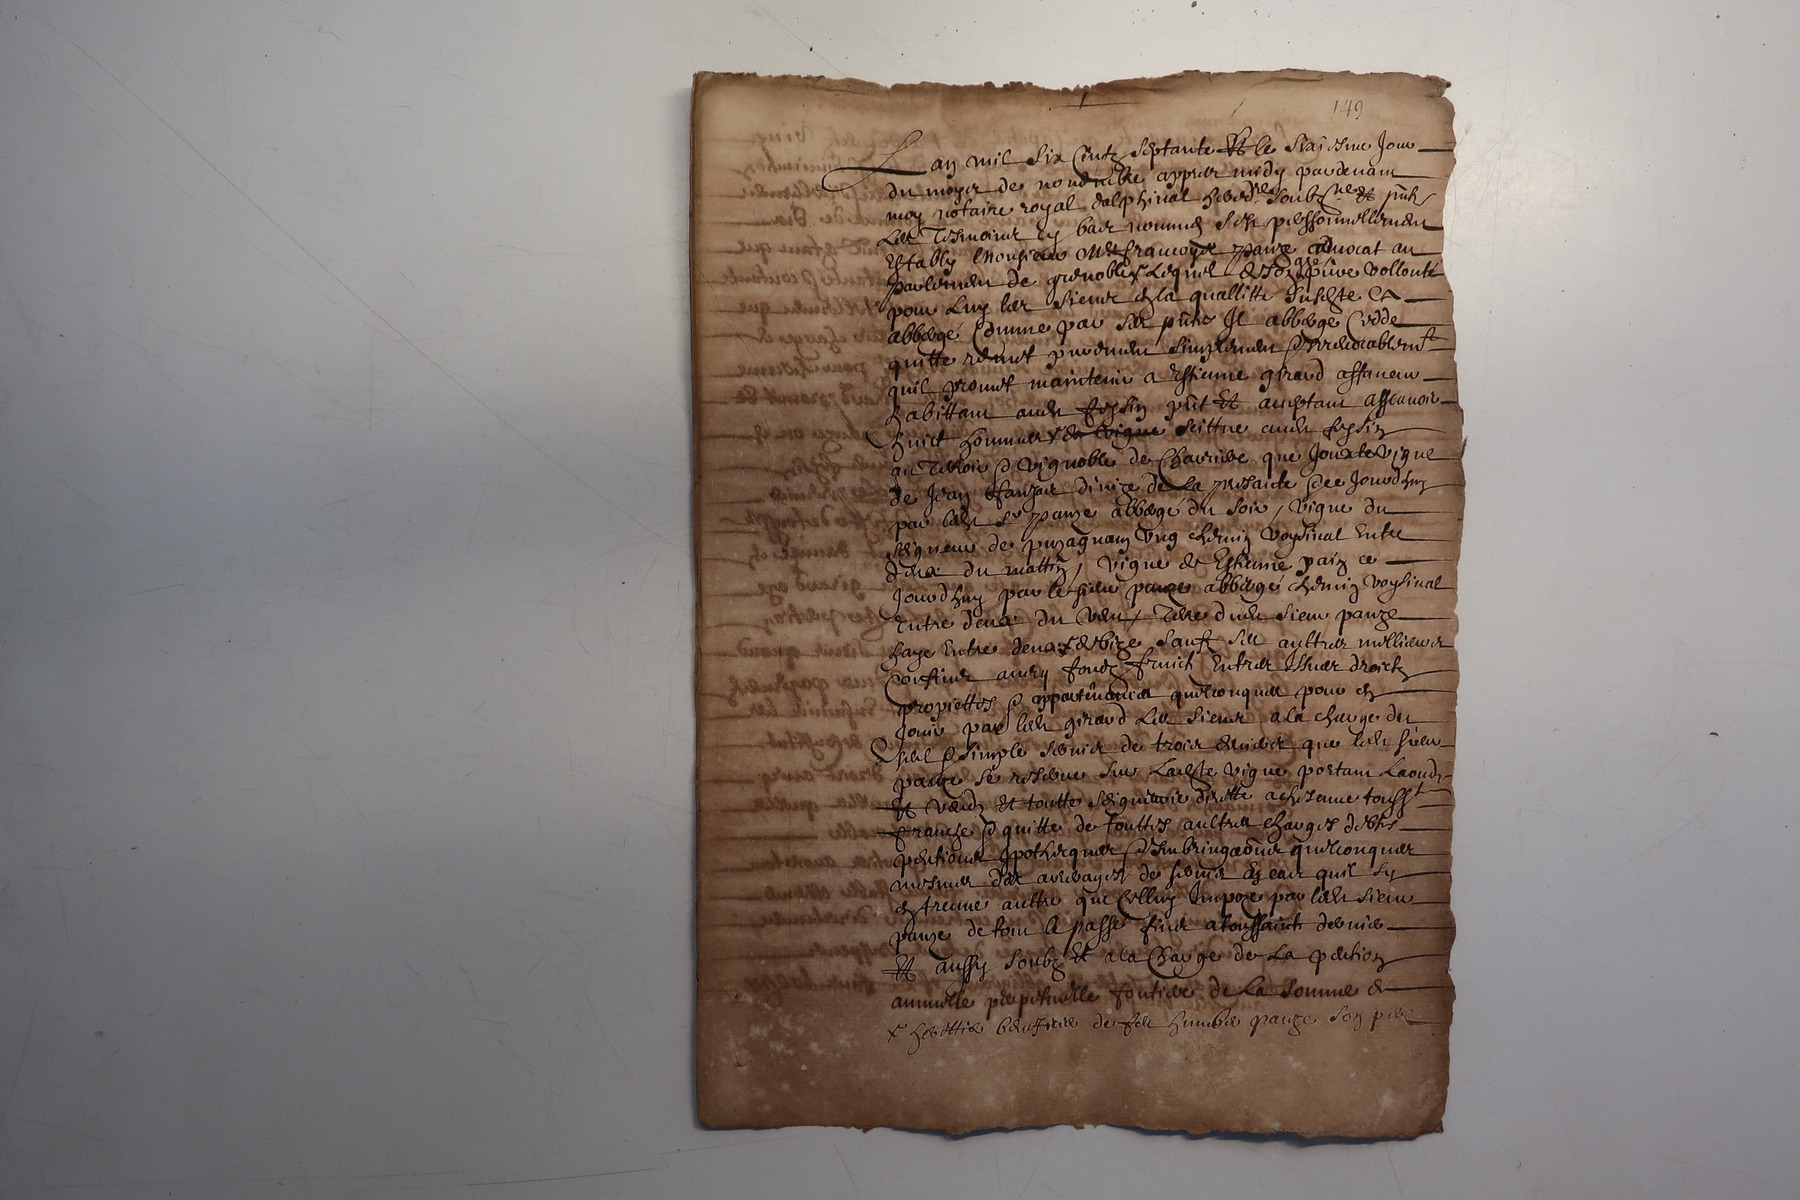 149
Lan mil six centz septante Et le sixiesme Jour
du moys de novembre appres midy pardevant
moy notaire royal dalphinal hered.re soubz.ne et pnts
Les tesmoins cy bas nommes sest personnellement
Estably Monsieur Me francoys panze advocat au
parlement de grenoble x Lequel de son gre pure vollonte
pour Luy les siens en la quallitte susdte a
abberge comme par ses pntes Il abberge cedde
quitte remet purement simplement et irrevocablemt
quil promet maintenir a Estienne girard affaneur
habittant audit pnt Et acceptant asscavoir
huict hommes de vigne scittue audit
au terroir et vignoble de que Jouxte vigne
de Jean divise de la presante ce Jourdhuy
par ledit sr panze abberge du soir / vigne du
seigneur de ung chemin voysinal Entre
deux du mattin / vigne de Estienne ce
Jourdhuy par le sieur panze abberge chemin voysinal
Entre deux du vent / terre dudit sieur panze
haye Entre deux de bize sauf ses aultres meillieurs
Confins avecq fondz fruictz Entrees Issues droictz
propriettes et appartenances quelconques pour en
Jouir par ledit girard Les siens a la charge du
et simple servis de trois deniers que ledit sieur
panze se reserve sur Ladte vigne portant Laoudz
Et vendz Et toutte seigneurie dirette a chescune toussts
franche et quitte de touttes aultres charges debtes
pentions ypotheques et quelconques
mesmes des arreyrages de servis En cas quil sy
en treuve aultre que Celluy Impoze par ledit sieur
panze de tout le passe finis a toussaintz dernier
Et aussy soubz Et a la Charge de La pention
annuelle perpetuelle fontiere de La somme de
x heritier beneficiere de feu humbert panze son pere